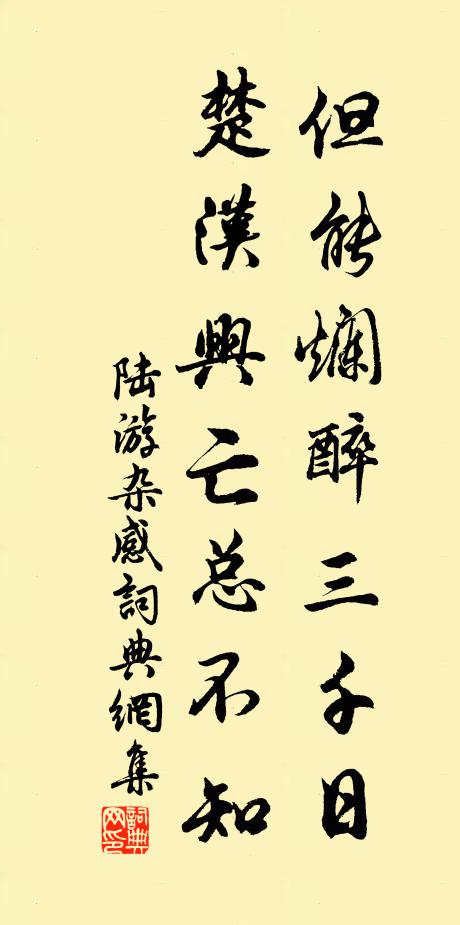 但能爛醉三千日
楚漢興亡总不知
陆游杂感詞典網集
詞典网印